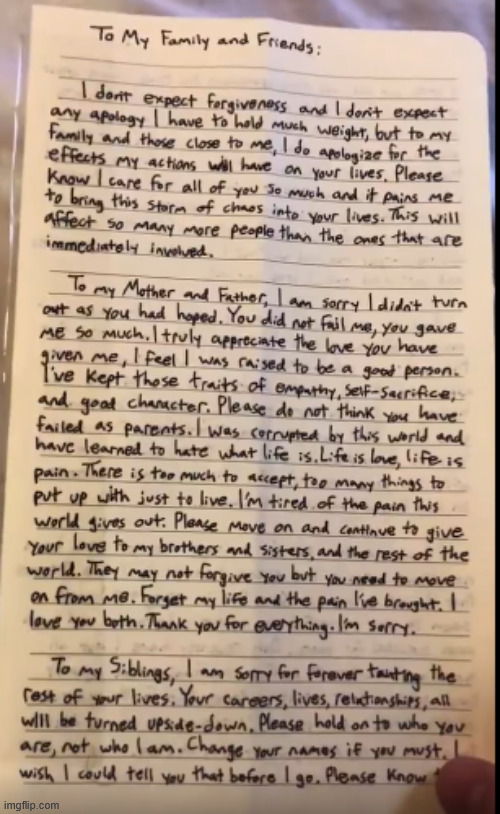 To My Family and Friends:
I don't expect forgiveness and I don't expect
any apology I have to hold much weight, but to my
family and those close to me, I do apologize for the
effects my actions will have on your lives. Please
Know I care for all of you so much and it pains me
to bring this storm of chaos into your lives. This will
affect so many more people than the ones that are
immediately involved.
To my Mother and Father, I am sorry I didn't turn
out as you had hoped. You did not fail me, you gave
me so much. I truly appreciate the love you have
given me, I feel I was raised to be a good person.
I've kept those traits of empathy, self-sacrifice,
and good character. Please do not think you have
failed as parents. I was corrupted by this world and
have learned to hate what life is. Life is love, life is
pain. There is too much to accept, too many things to
put up with just to live. I'm tired of the pain this
world gives out. Please move on and continue to give
your love to my brothers and sisters, and the rest of the
world. They may not forgive you but you need to move
on from me. Forget my life and the pain I've brought. I
love you both. Thank you for everything. I'm sorry.
To my Siblings, I am sorry for forever tainting the
rest of your lives. Your careers, lives, relationships, all
will be turned upside-down. Please hold on to who you
are, not who I am. Change your names if you must. I
wish I could tell you that before I go. Please know
imgflip.com